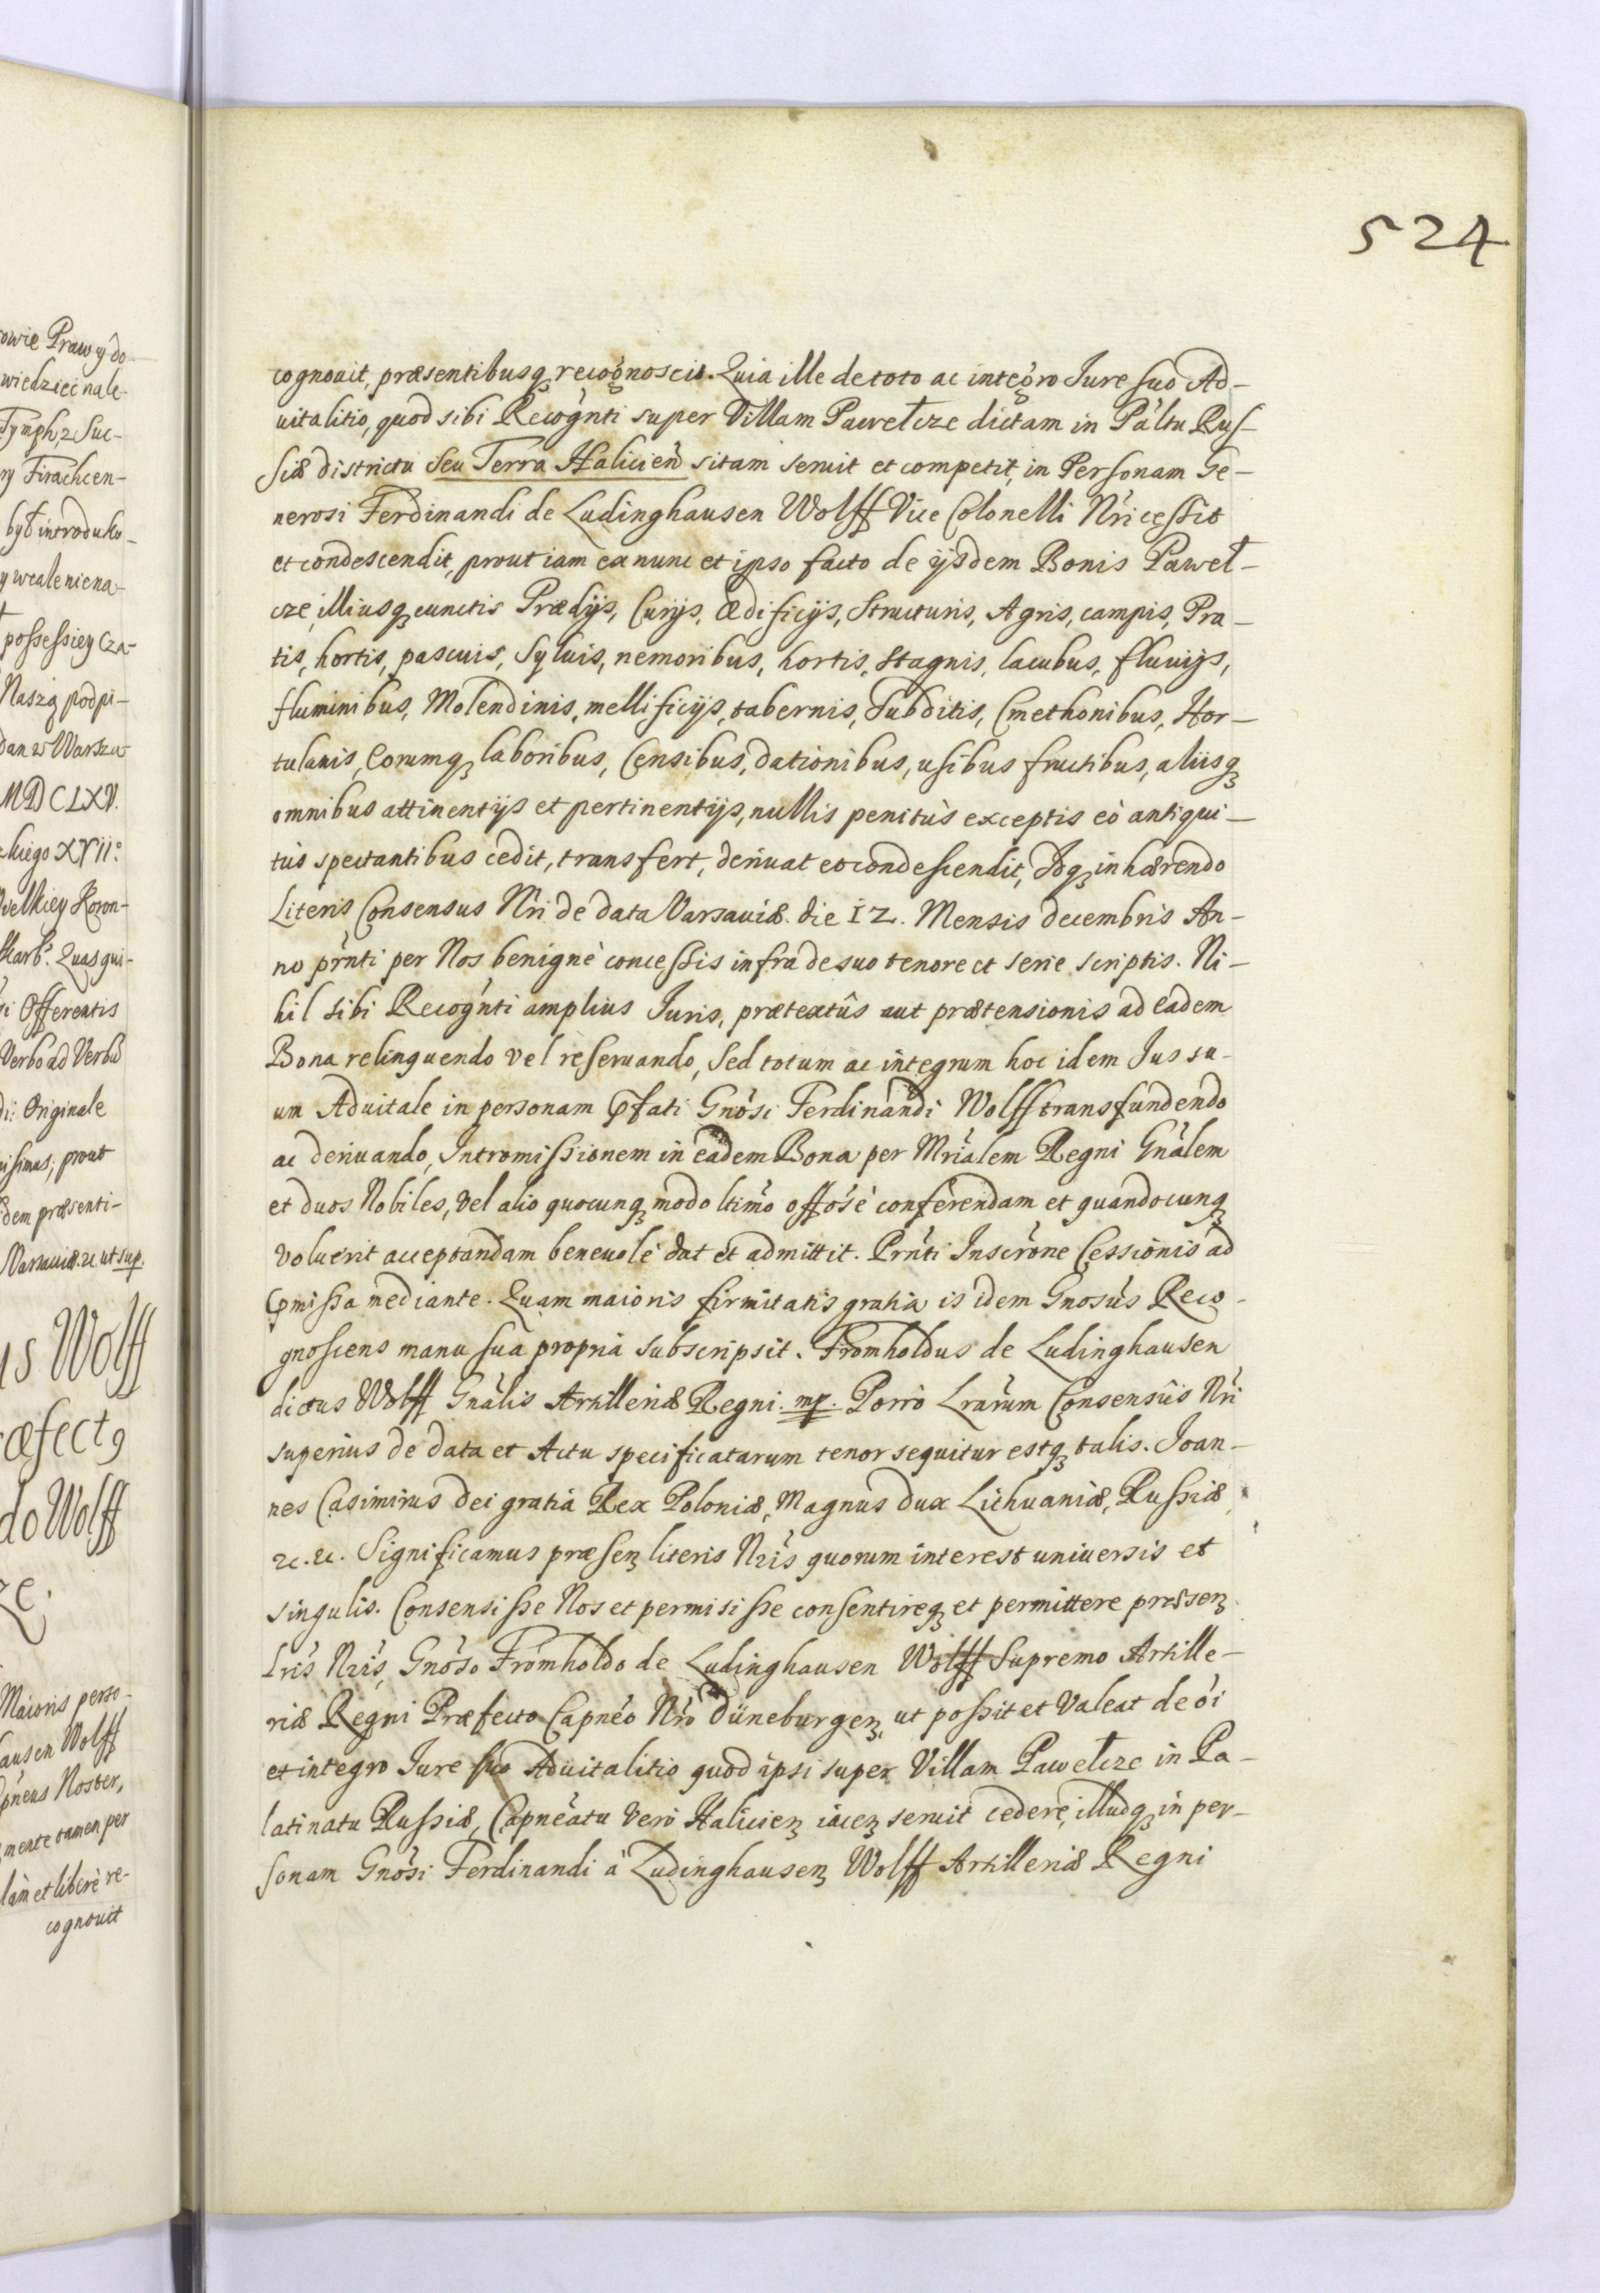 524
cognouit, præsentibusq3 recognoscit. Quia ille de toto ac integro Iure suo Ad-
uitalitio, quod sibi Recogn̄ti super Villam Pawełcze dictam in Pal̄tu Rus-
siæ districtu seu Terra Halicien̄ sitam seruit et competit, in Personam Ge-
nerosi Ferdinandi de Ludinghausen Wolff Vice Colonelli Nr̄i cessit
et condescendit, prout iam ex nunc et ipso facto de ijsdem Bonis Paweł-
cze, illiusq3 cunctis Prædijs, Curijs, ædificijs, Structuris, Agris, campis, Pra-
tis, hortis, pascuis, Syluis, nemoribus, hortis, stagnis, lacubus, fluuijs,
fluminibus, Molendinis, mellificijs, tabernis, Subditis, Cmethonibus, Hor-
tulanis, Eorumq3 laboribus, Censibus, dationibus, usibus fructibus, aliisq3
omnibus attinentijs et pertinentijs, nullis penitùs exceptis eò antiqui-
tùs spectantibus cedit, transfert, deriuat et condescendit, Idq3 inhærendo
Literis Consensus Nr̄i de data Varsauiæ. die 12. Mensis decembris An-
no pr̄nti per Nos benignè concessis infra de suo tenore et serie scriptis. Ni-
hil sibi Recogn̄ti amplius Iuris, prætextûs aut prætensionis ad eadem
Bona relinquendo vel reseruando, Sed totum ac integrum hoc idem Ius su-
um Aduitale in personam p̄fati Gnōsi Ferdinandi Wolff transfundendo
ac deriuando, Intromissionem in eadem Bona per Mrīalem Regni Gnālem
et duos Nobiles, vel alio quocunq3 modo ltimō offōsè conferendam et quandocunq3
voluerit acceptandam beneuolè dat et admittit. Prn̄ti Inscrōne Cessionis ad
p̄missa mediante. Quam maioris firmitatis gratia is idem Gnosūs Reco-
gnoscens manu suà proprià subscripsit. Fromholdus de Ludinghausen
dictus Wolff Gnālis Artilleriæ Regni. mp. Porrò Lrārum Consensûs Nr̄i
superius de data et Actu specificatarum tenor sequitur estq3 talis. Ioan-
nes Casimirus dei gratia Rex Poloniæ, Magnus dux Lithuaniæ, Russiæ
2c. 2c. Significamus præsen3 literis Nr̄is quorum interest uniuersis et
singulis. Consensisse Nos et permisisse consentireq3 et permittere præsen3
Lris̄ Nr̄is, Gnōso Fromholdo de Ludinghausen Wolff Supremo Artille-
riæ Regni Præfecto Capnēo Nr̄o Düneburgen3, ut possit et Valeat de oī
et integro Iure suo Aduitalitio quod ipsi super Villam Pawełcze in Pa-
latinatu Russiæ, Capnēatu verò Halicien3 iacen3 seruit cedere, illudq3 in per-
sonam Gnōsi Ferdinandi à Ludinghausen3 Wolff Artilleriæ Regni